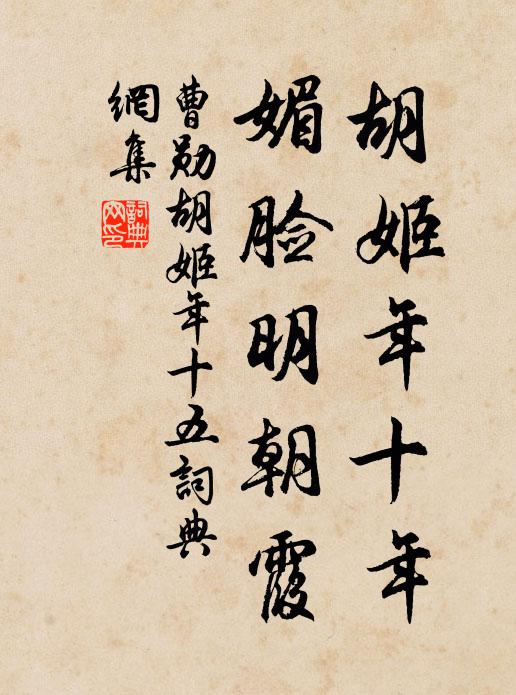 胡姬年十年
媚脸明朝霞
曹勋胡姬年十五詞典
網集
詞典网印